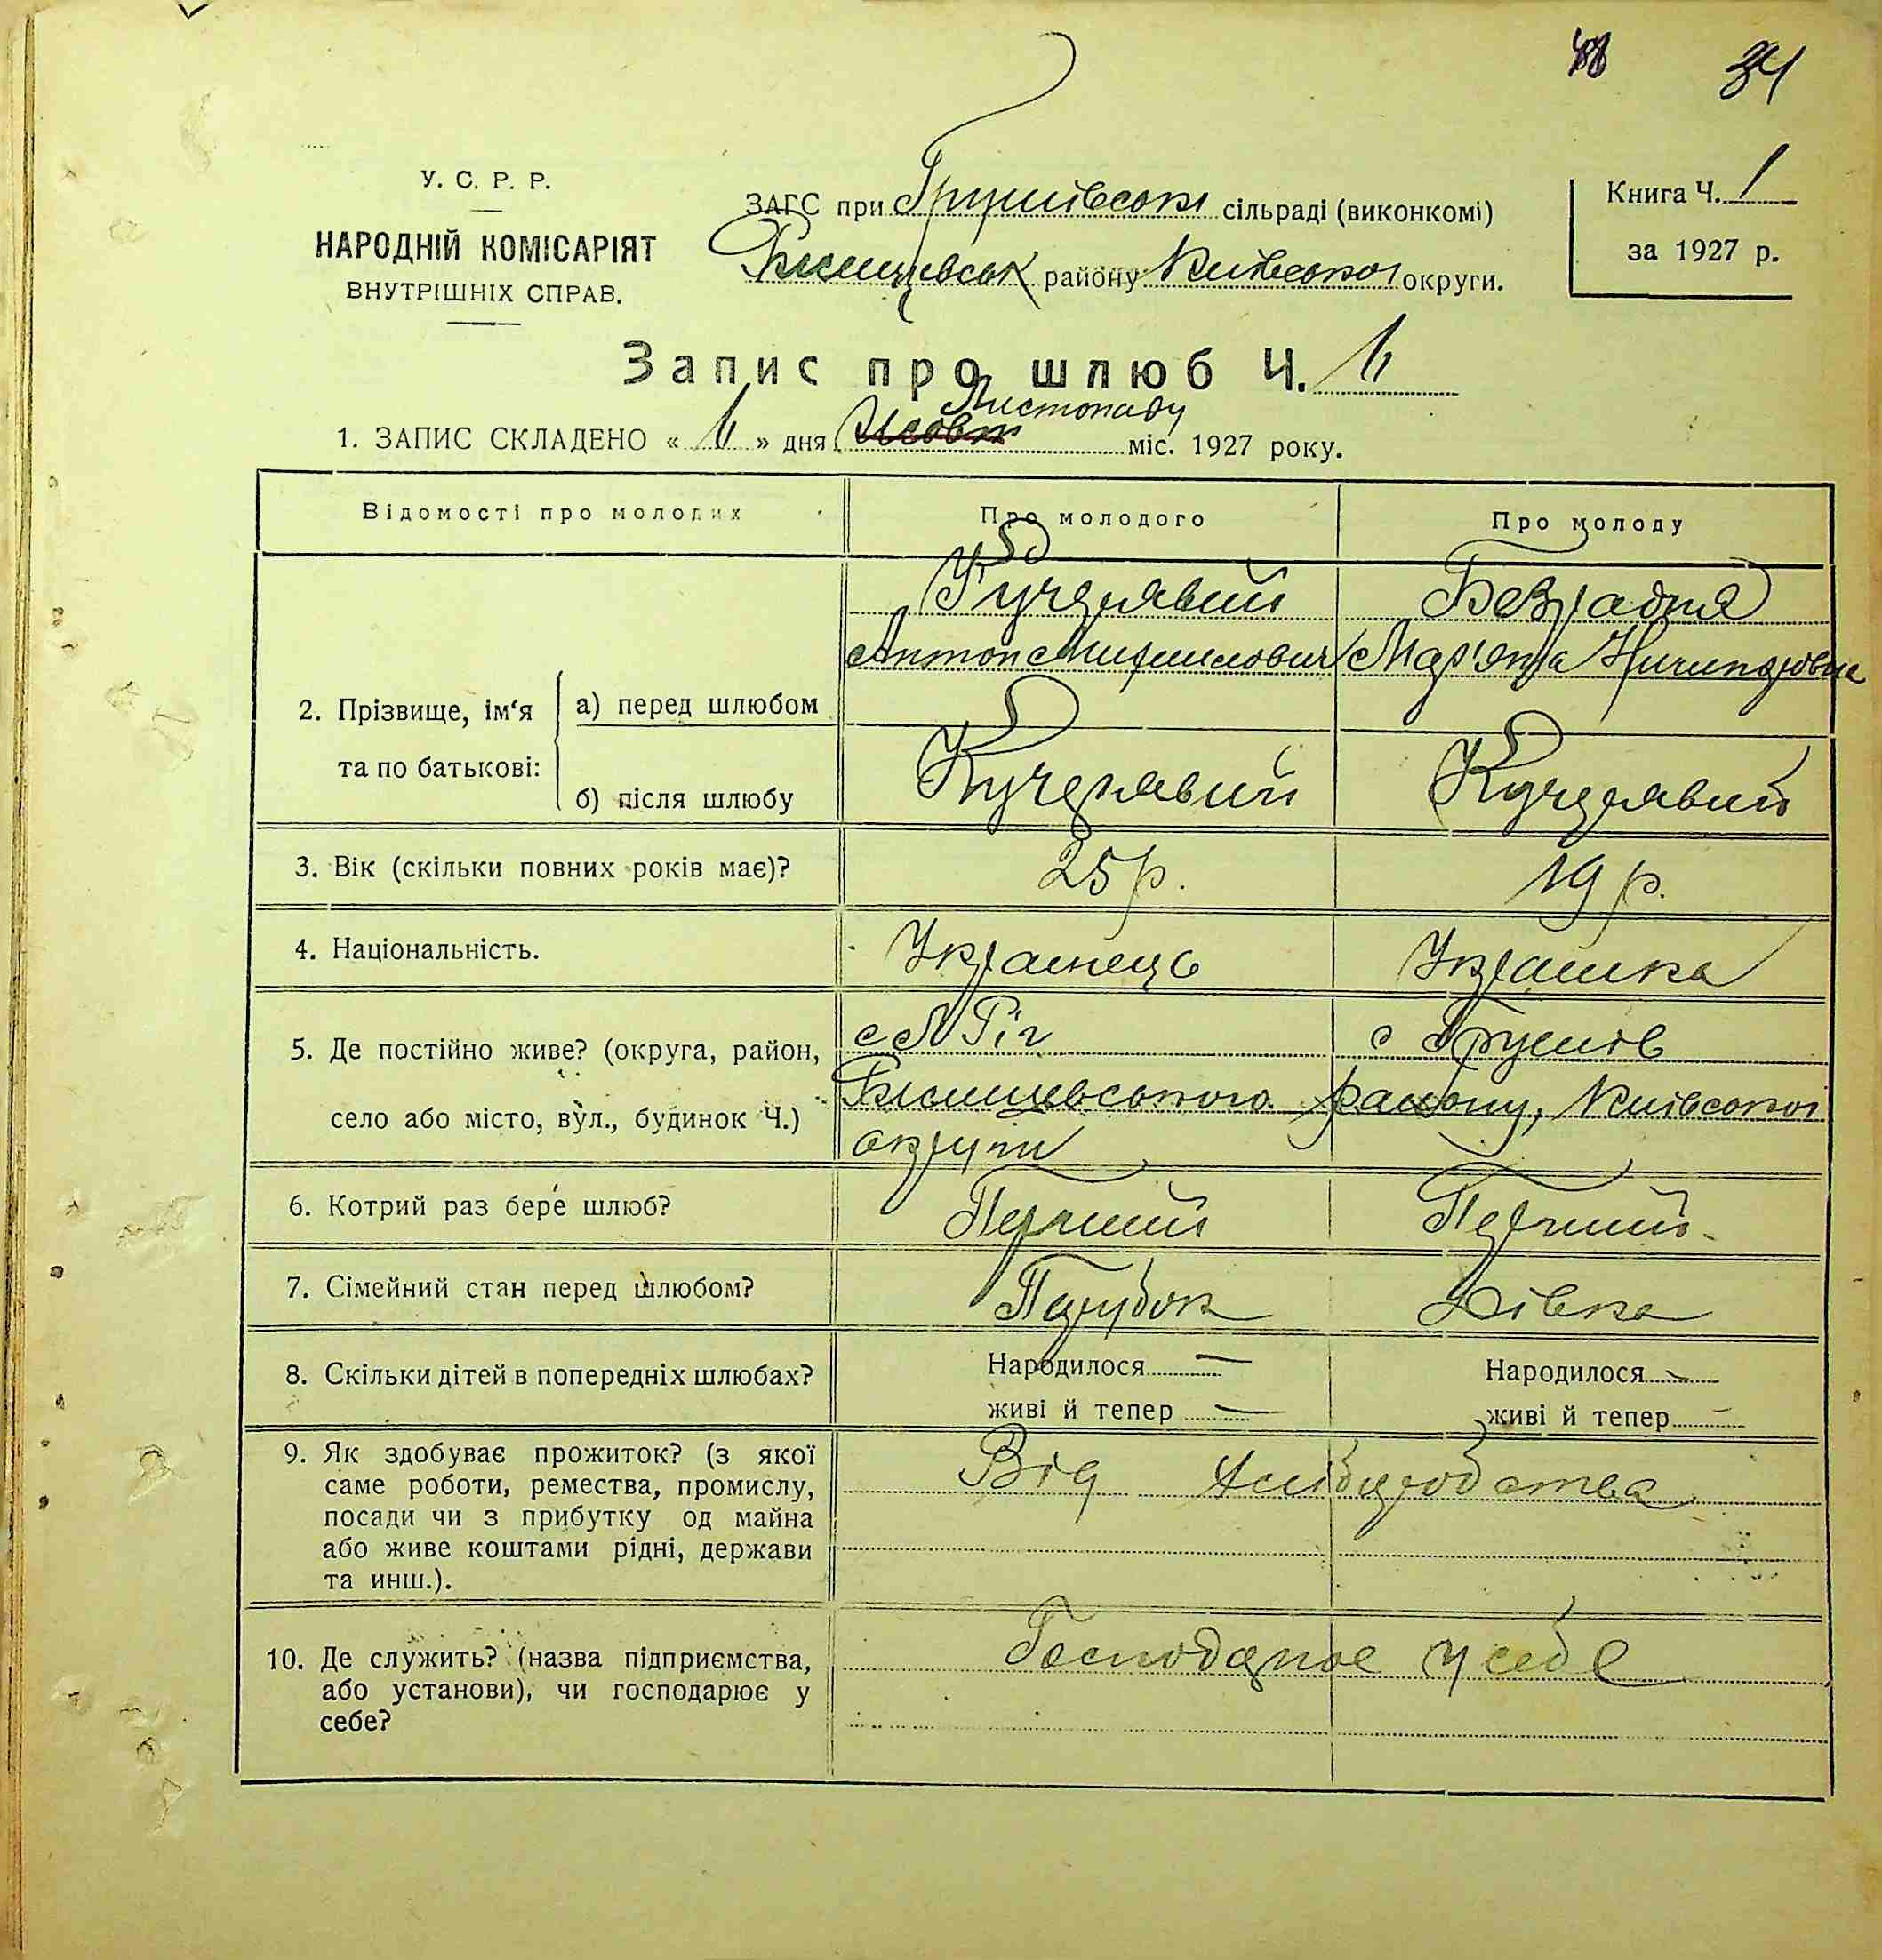 34
У. С. Р. Р.
НАРОДНІЙ КОМІСАРІЯТ
ВНУТРІШНІХ СПРАВ.
ЗАГС при Грушівські сільраді (виконкомі)
району Київської округи.
Книга Ч. 1
за 1927 р.
Запис про шлюб Ч. 11
Листопаду
1. ЗАПИС СКЛАДЕНО « 11 » дня міс. 1927 року.
Відомості про молодих
Про молодого
Про молоду
2. Прізвище, ім'я та по батькові:
а) перед шлюбом
Кучерявий
Антон Михайлович
Безрадня
Мар'яна Ничипорівна
б) після шлюбу
Кучерявий
Кучерявий
3. Вік (скільки повних років має)?
25 р.
19 р.
4. Національність.
Українець
Українка
5. Де постійно живе? (округа, район,
село або місто, вул., будинок Ч.)
с Л Ріг
с Грушів
району, Київської
округи
6. Котрий раз бере шлюб?
Перший
Перший
7. Сімейний стан перед шлюбом?
Парубок
Дівка
8. Скільки дітей в попередніх шлюбах?
Народилося —
живі й тепер —
Народилося —
живі й тепер —
9. Як здобуває прожиток? (з якої
саме роботи, ремества, промислу,
посади чи з прибутку од майна
або живе коштами рідні, держави
та инш.).
Від хліборобства
10. Де служить? (назва підприємства,
або установи), чи господарює у
себе?
Господарює у себе